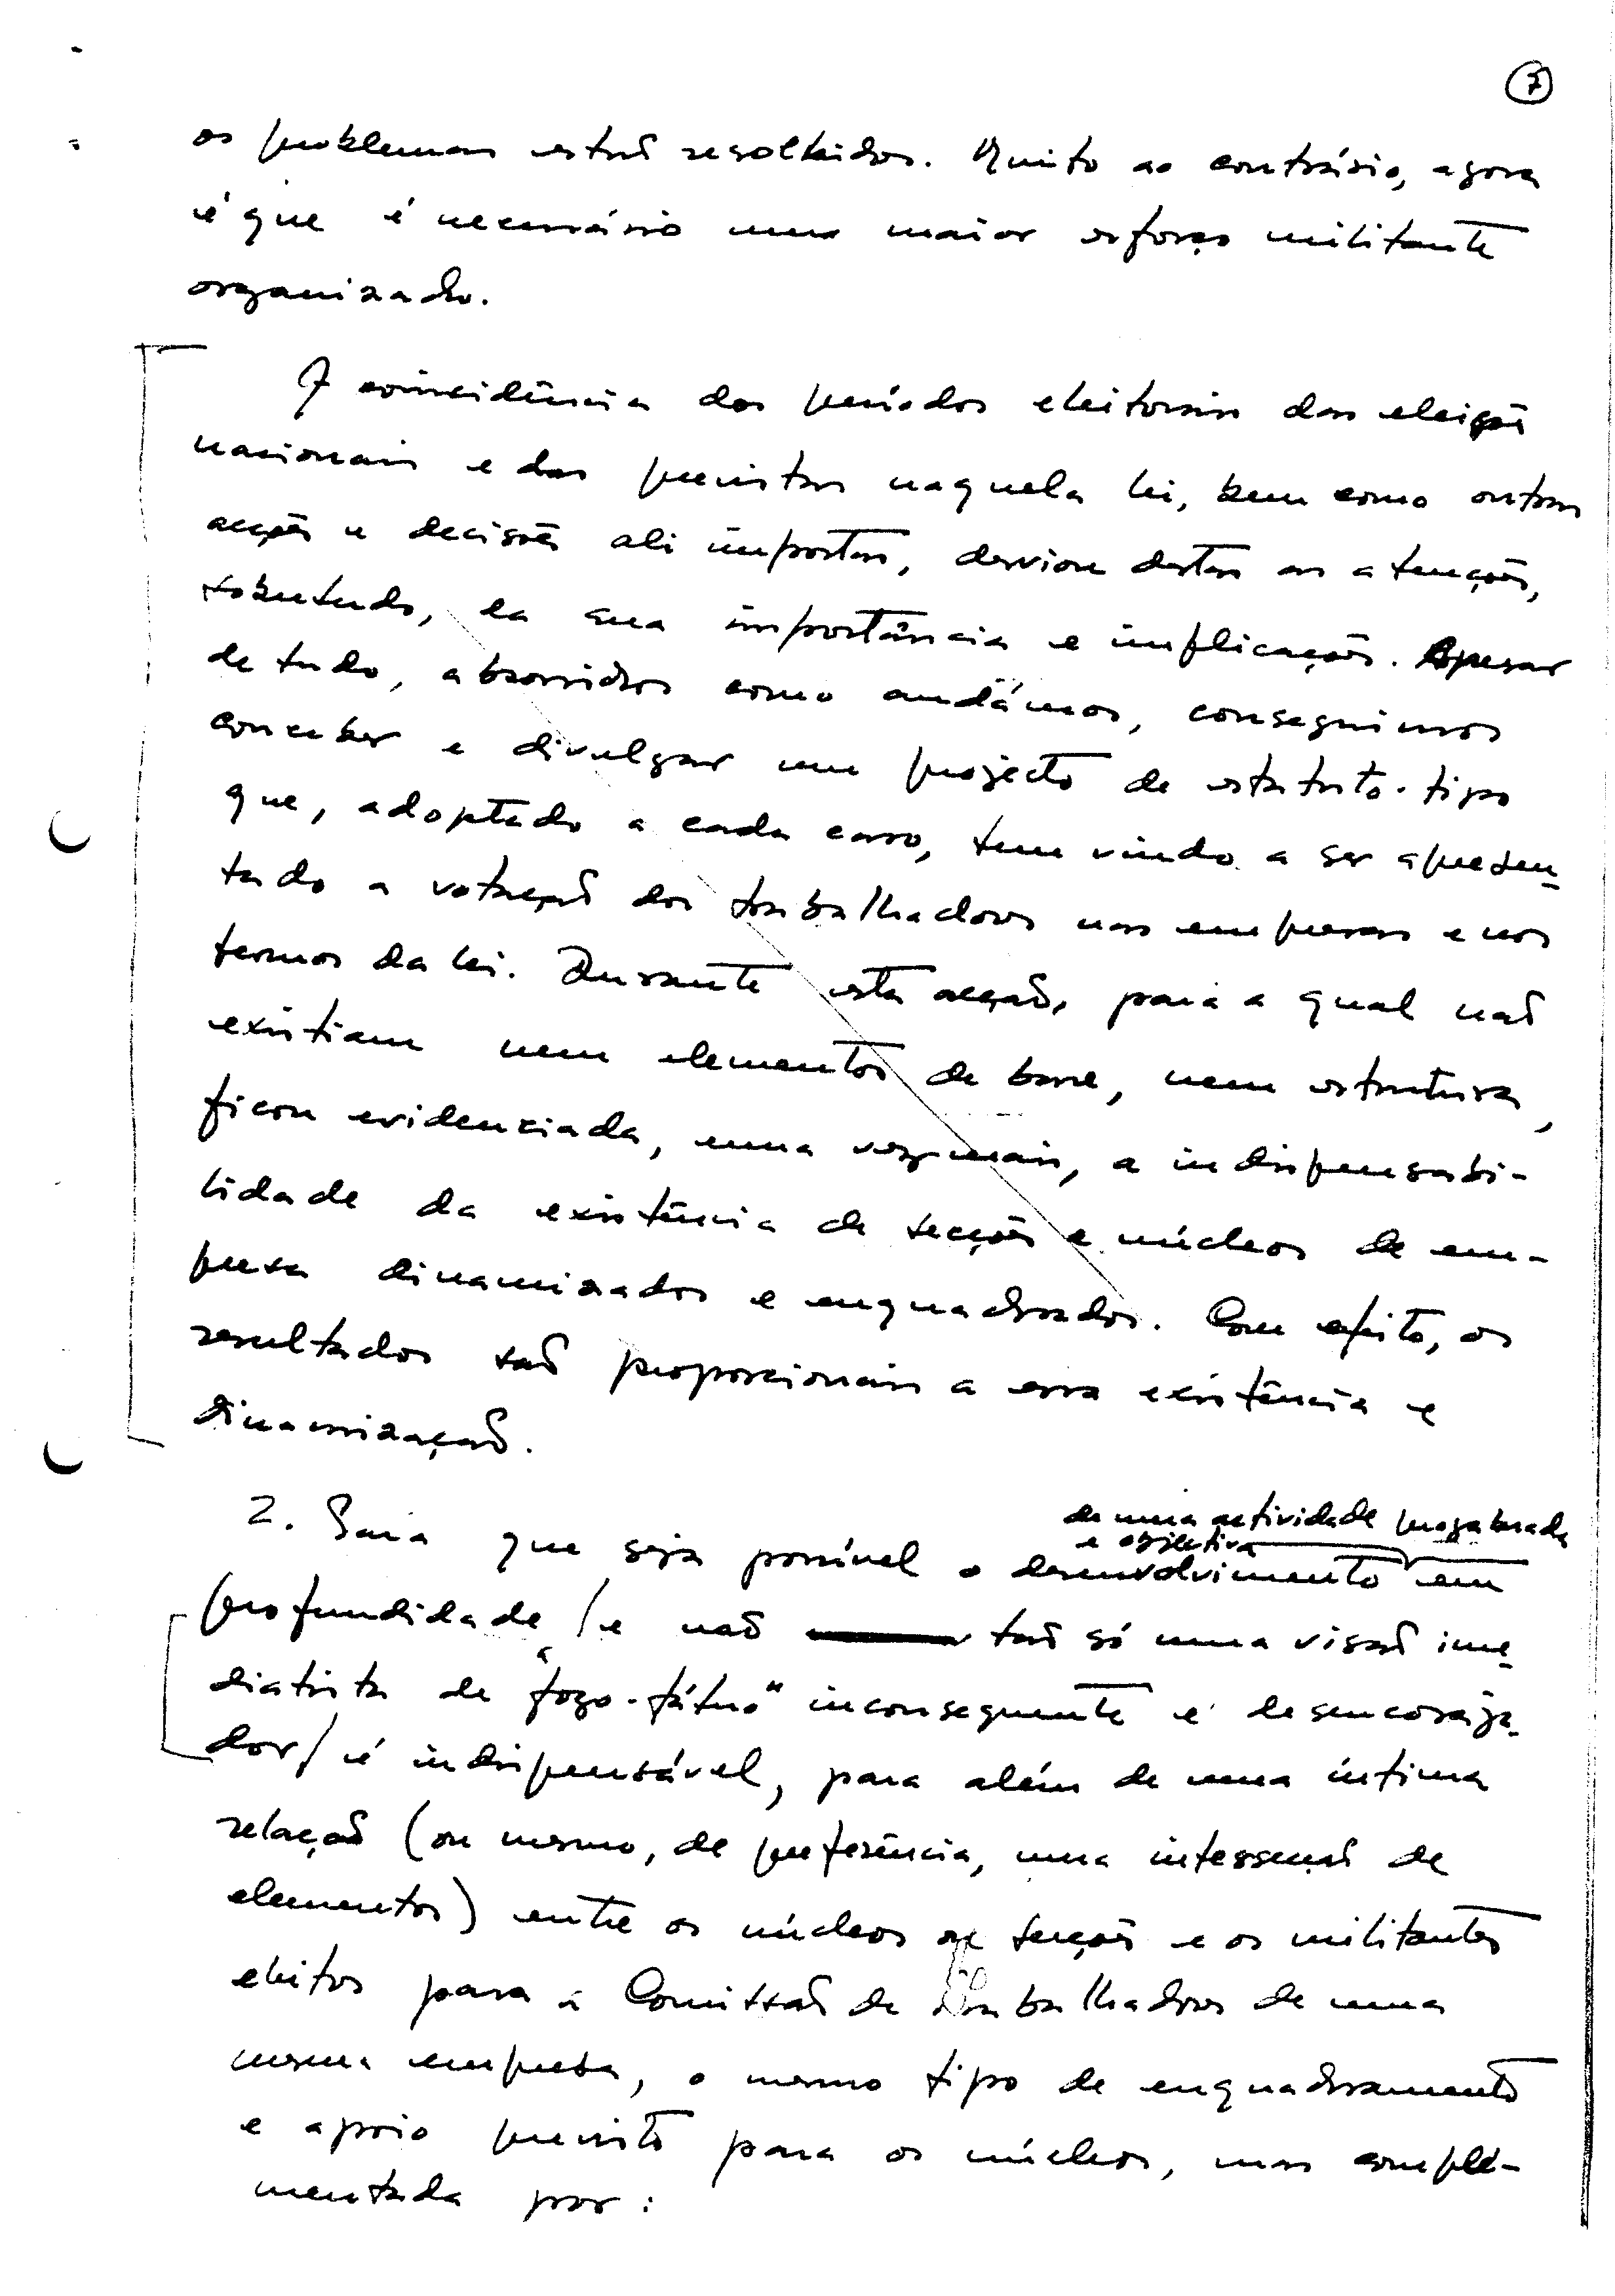 7
os problemas estão resolvidos. Muito ao contrário, agora
é que é necessário um maior esforço militante
organizado.
A coincidência dos períodos eleitorais das eleições
nacionais e das previstas naquela lei, bem como outras
acções e decisões ali impostas, desviou destas as atenções,
sobretudo, da sua importância e implicações. Apesar
de tudo, absorvidos como andámos, conseguimos
conceber e divulgar um projecto de estatuto-tipo
que, adoptado a cada caso, tem vindo a ser apresen-
tado a votação dos trabalhadores nas empresas e nos
termos da lei. Durante esta acção, para a qual não
existiam nem elementos de base, nem estrutura,
ficou evidenciada, uma vez mais, a indispensabi-
lidade da existência de secções e núcleos de em-
presa dinamizados e enquadrados. Com efeito, os
resultados são proporcionais a essa existência e
dinamização.
de uma actividade
e objectiva
2. Para que seja possível o desenvolvimento em
profundidade / e não tão só uma visão ime-
diatista de "fogo-fátuo" inconsequente e desencoraja-
dor / é indispensável, para além de uma íntima
relação (ou mesmo, de preferência, uma intersecção de
elementos) entre os núcleos ou secções e os militantes
eleitos para a Comissão de Trabalhadores de uma
mesma empresa, o mesmo tipo de enquadramento
e apoio previsto para os núcleos, mas comple-
mentada por: